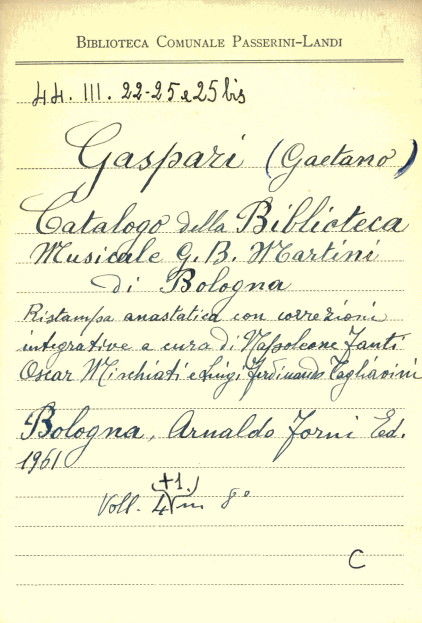 BIBLIOTECA COMUNALE PASSERINI-LANDI
44. III. 22-25 e 25 bis
Gaspari (Gaetano)
Catalogo della Biblioteca
Musicale G. B. Martini
di Bologna
Ristampa anastatica con correzioni
integrative a cura di Napoleone Fanti
Oscar Mischiati e Luigi Ferdinando Tagliavini
Bologna, Arnaldo Forni Ed.
1961
(+1.)
Voll. 4 in 8°
C